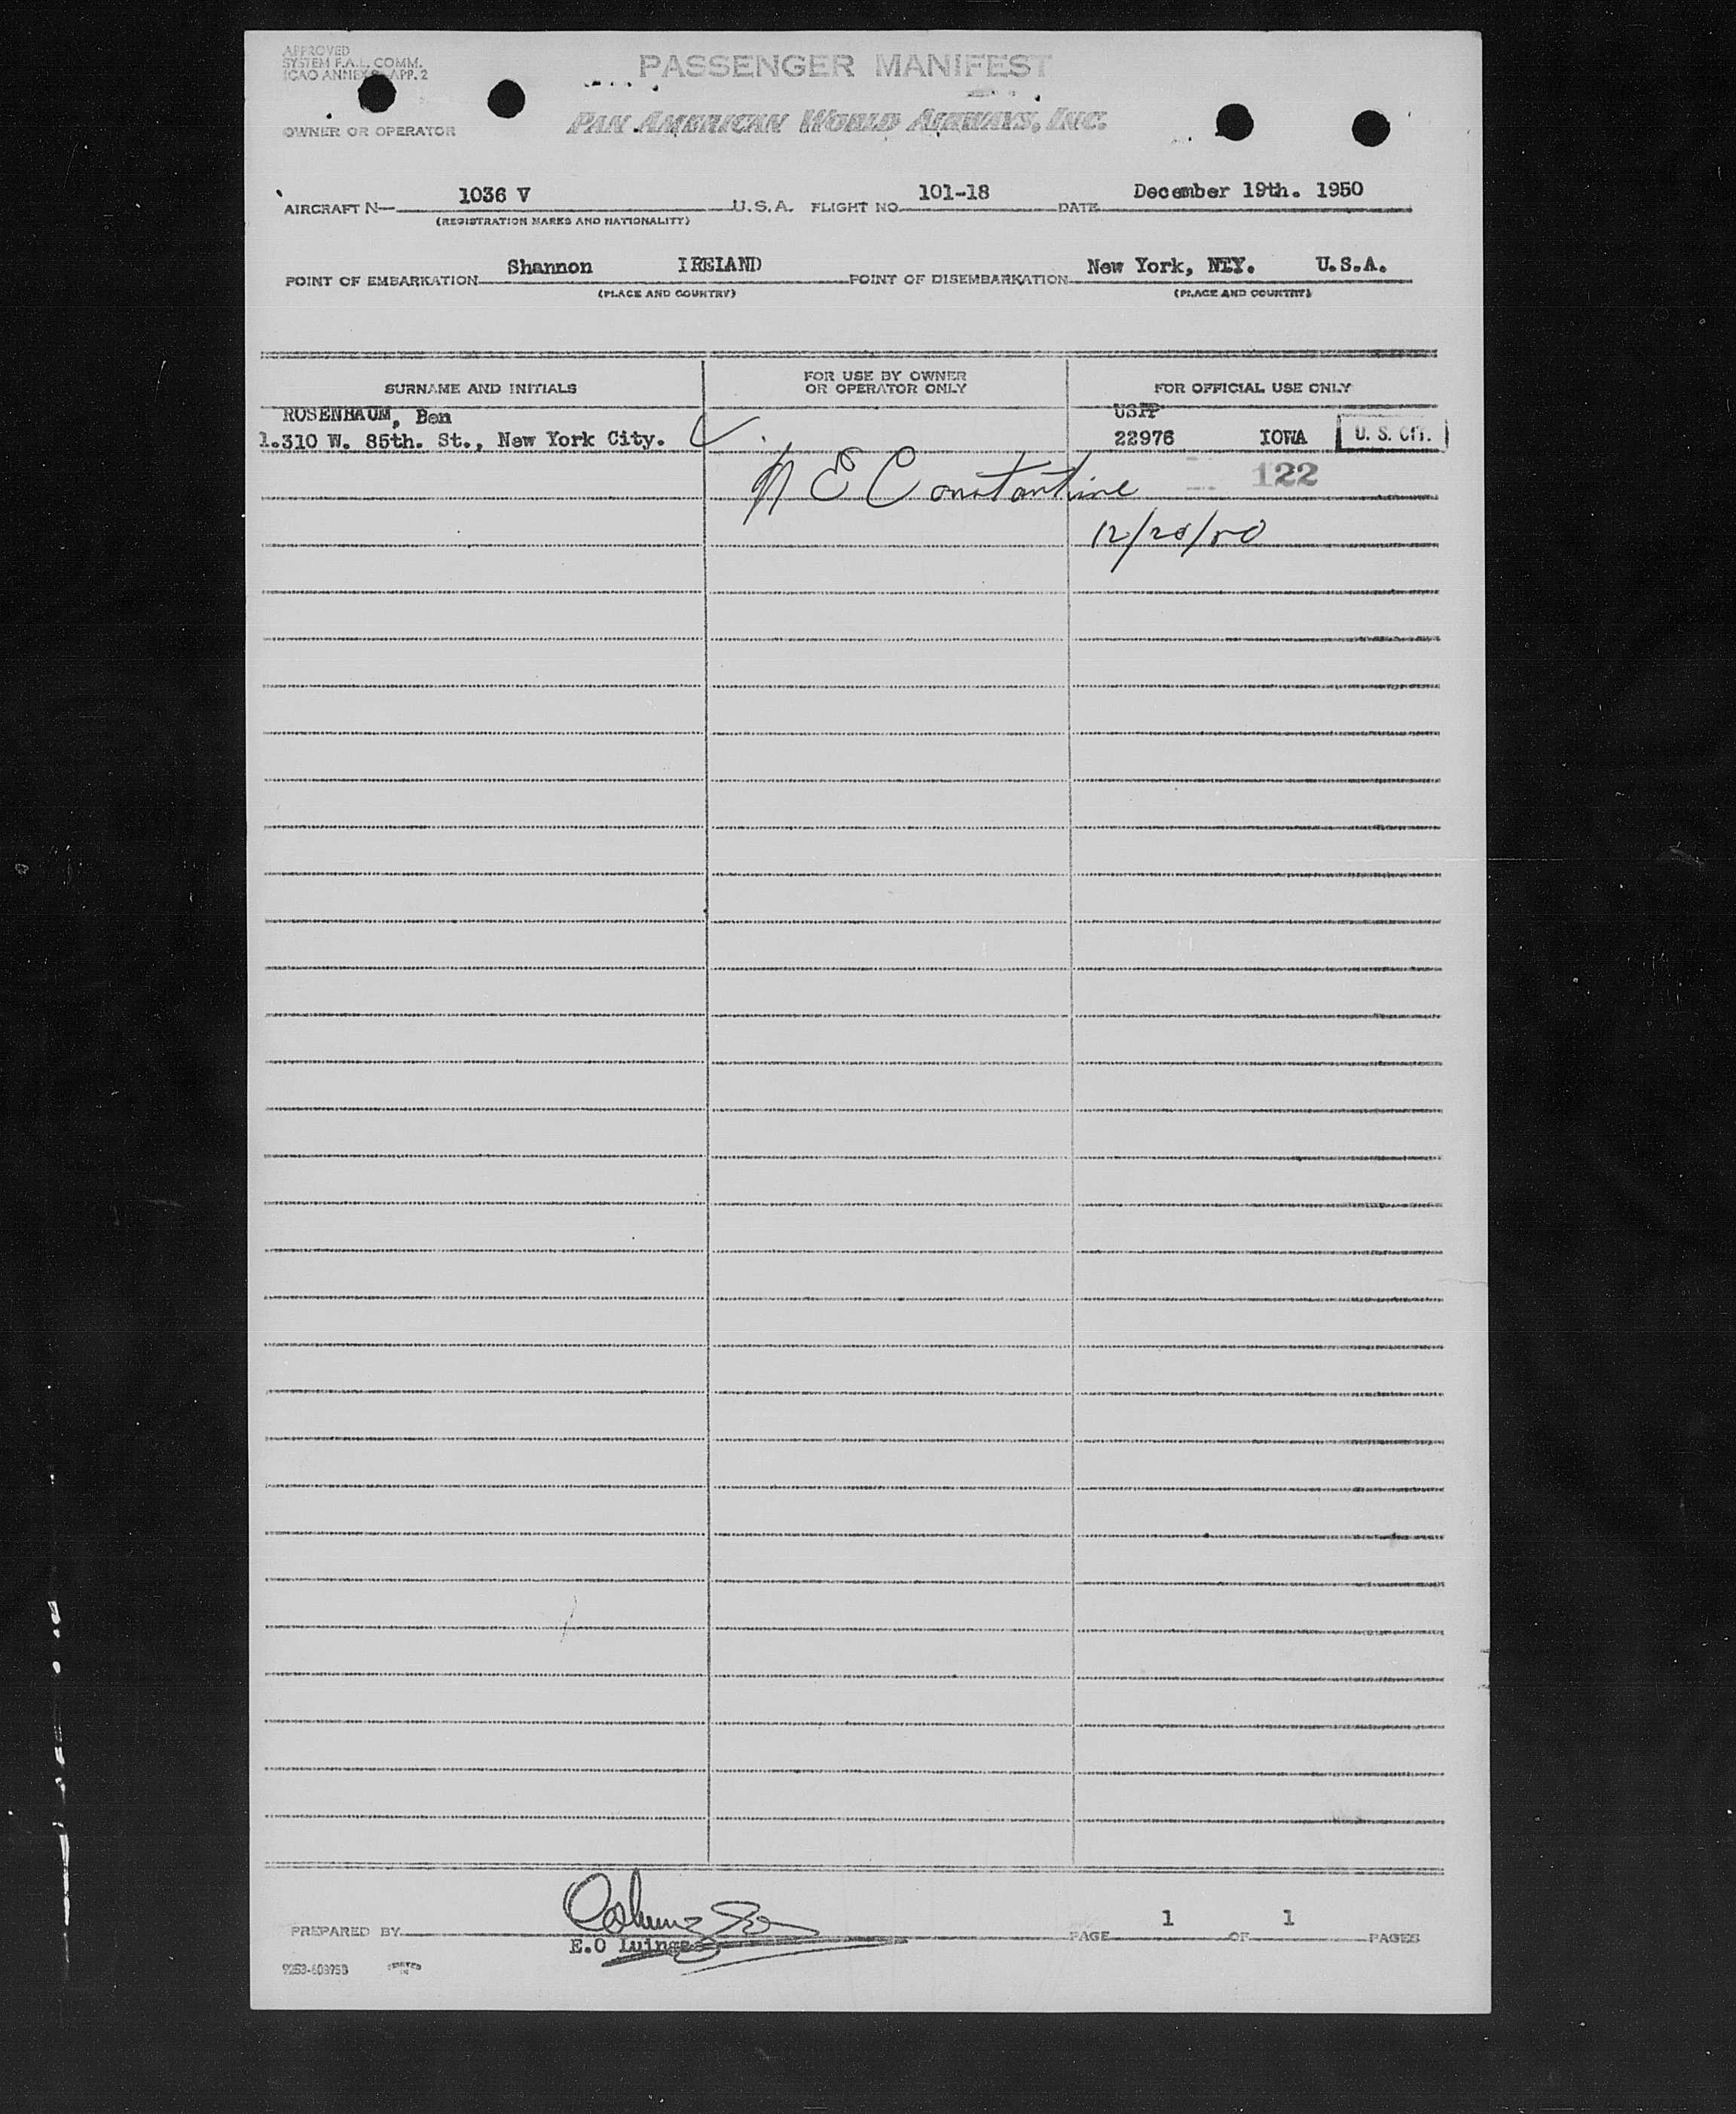 APPROVED
SYSTEM F.A.L. COMM.
ICAO ANNEX 9 APP. 2
PASSENGER MANIFEST
OWNER OR OPERATOR
PAN AMERICAN WORLD AIRWAYS, INC.
AIRCRAFT N— 1036 V U.S.A. FLIGHT NO. 101-18 DATE December 19th. 1950
(REGISTRATION MARKS AND NATIONALITY)
POINT OF EMBARKATION Shannon IRELAND POINT OF DISEMBARKATION New York, NEY. U.S.A.
(PLACE AND COUNTRY) (PLACE AND COUNTRY)
SURNAME AND INITIALS FOR USE BY OWNER OR OPERATOR ONLY FOR OFFICIAL USE ONLY
ROSENBAUM, Ben USPP
1.310 W. 85th. St., New York City. 22976 IOWA U. S. CIT.
N E Constantine 122
12/20/50
PREPARED BY E.O Luings PAGE 1 OF 1 PAGES
9253-60895B PRINTED IN